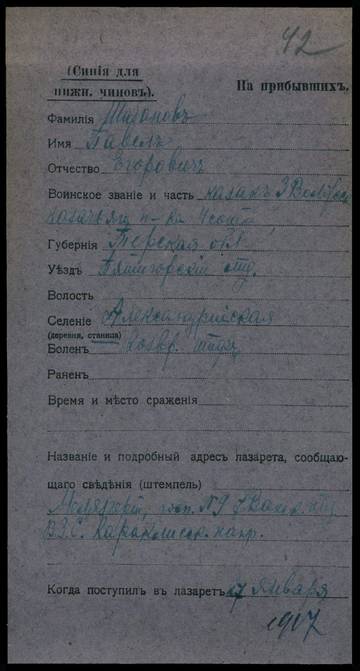 42
(Синія для
нижн. чиновъ).
На прибывшихъ.
Фамилія
Имя Павелъ
Отчество Егоровичъ
Воинское званіе и часть казакъ 3
казачьяго п-ка 4 сотни
Губернія Терская обл.
Уѣздъ Пятигорскій отд.
Волость
Селеніе Александрійская
(деревня, станица)
Боленъ Возвр. тифъ
Раненъ
Время и мѣсто сраженія
Названіе и подробный адресъ лазарета, сообщаю-
щаго свѣдѣнія (штемпель)
госп. №9
В.З.С. Караклисск. напр.
Когда поступилъ в лазаретъ 17 января
1917